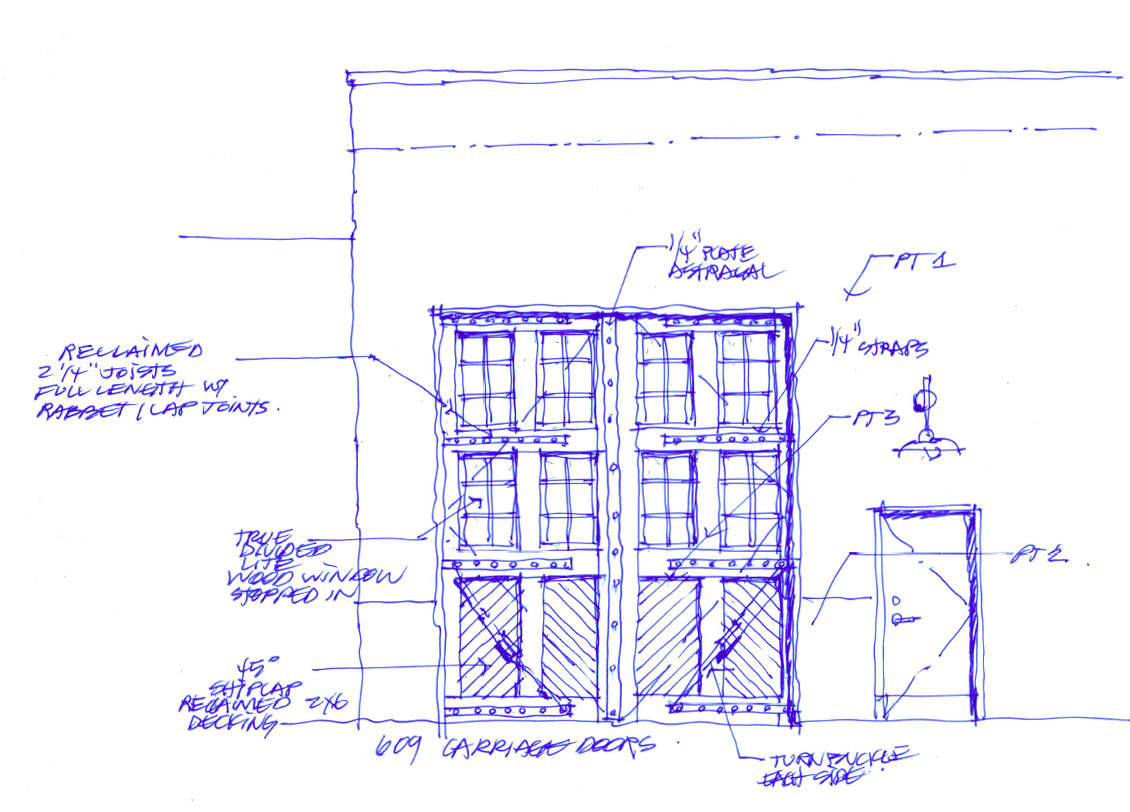 1/4" PLATE
ASTRAGAL
PT 1
1/4" STRAPS
RECLAIMED
2 1/4" JOISTS
FULL LENGTH W/
RABBET / LAP JOINTS.
PT 3
TRUE
DIVIDED
LITE
WOOD WINDOW
STOPPED IN
PT 2
45°
SHIPLAP
RECLAIMED 2X6
DECKING
609 CARRIAGE DOORS
TURNBUCKLE
EACH SIDE